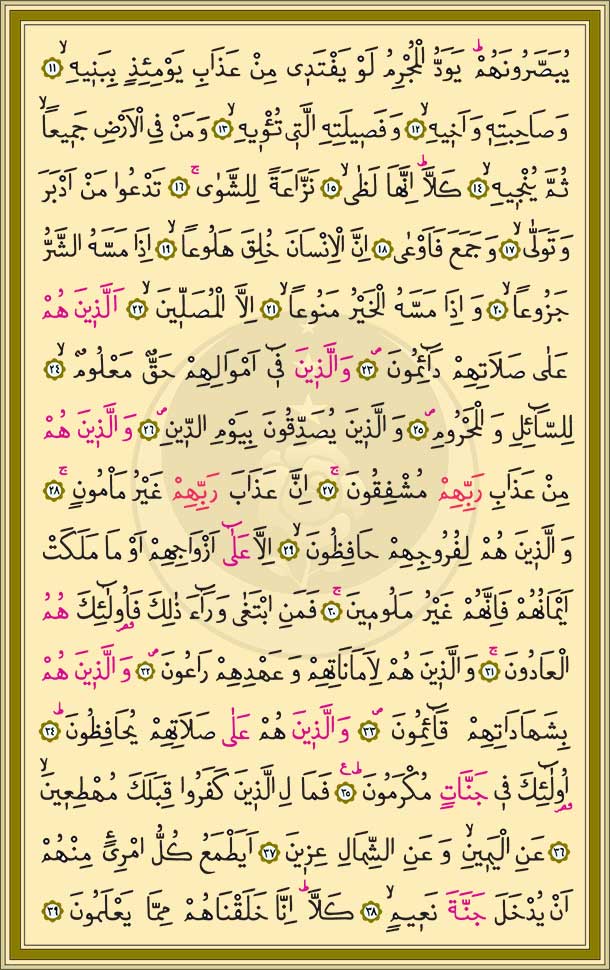 يُبَصَّرُونَهُمْۜ يَوَدُّ الْمُجْرِمُ لَوْ يَفْتَد۪ي مِنْ عَذَابِ يَوْمِئِذٍ بِبَن۪يهِۙ ﴿١١﴾
وَصَاحِبَتِه۪ وَاَخ۪يهِۙ ﴿١٢﴾ وَفَص۪يلَتِهِ الَّت۪ي تُـْٔو۪يهِۙ ﴿١٣﴾ وَمَنْ فِي الْاَرْضِ جَم۪يعاًۙ
ثُمَّ يُنْج۪يهِۙ ﴿١٤﴾ كَلَّاۜ اِنَّهَا لَظٰىۙ ﴿١٥﴾ نَزَّاعَةً لِلشَّوٰىۚ ﴿١٦﴾ تَدْعُوا مَنْ اَدْبَرَ
وَتَوَلّٰىۙ ﴿١٧﴾ وَجَمَعَ فَاَوْعٰى ﴿١٨﴾ اِنَّ الْاِنْسَانَ خُلِقَ هَلُوعاًۙ ﴿١٩﴾ اِذَا مَسَّهُ الشَّرُّ
جَزُوعاًۙ ﴿٢٠﴾ وَاِذَا مَسَّهُ الْخَيْرُ مَنُوعاًۙ ﴿٢١﴾ اِلَّا الْمُصَلّ۪ينَۙ ﴿٢٢﴾ اَلَّذ۪ينَ هُمْ
عَلٰى صَلَاتِهِمْ دَٓائِمُونَۖ ﴿٢٣﴾ وَالَّذ۪ينَ ف۪ٓي اَمْوَالِهِمْ حَقٌّ مَعْلُومٌۙ ﴿٢٤﴾
لِلسَّٓائِلِ وَالْمَحْرُومِۖ ﴿٢٥﴾ وَالَّذ۪ينَ يُصَدِّقُونَ بِيَوْمِ الدّ۪ينِۖ ﴿٢٦﴾ وَالَّذ۪ينَ هُمْ
مِنْ عَذَابِ رَبِّهِمْ مُشْفِقُونَۚ ﴿٢٧﴾ اِنَّ عَذَابَ رَبِّهِمْ غَيْرُ مَأْمُونٍۚ ﴿٢٨﴾
وَالَّذ۪ينَ هُمْ لِفُرُوجِهِمْ حَافِظُونَۙ ﴿٢٩﴾ اِلَّا عَلٰٓى اَزْوَاجِهِمْ اَوْ مَا مَلَكَتْ
اَيْمَانُهُمْ فَاِنَّهُمْ غَيْرُ مَلُوم۪ينَۚ ﴿٣٠﴾ فَمَنِ ابْتَغٰى وَرَٓاءَ ذٰلِكَ فَاُو۬لٰٓئِكَ هُمُ
الْعَادُونَۚ ﴿٣١﴾ وَالَّذ۪ينَ هُمْ لِاَمَانَاتِهِمْ وَعَهْدِهِمْ رَاعُونَۖ ﴿٣٢﴾ وَالَّذ۪ينَ هُمْ
بِشَهَادَاتِهِمْ قَٓائِمُونَۖ ﴿٣٣﴾ وَالَّذ۪ينَ هُمْ عَلٰى صَلَاتِهِمْ يُحَافِظُونَۜ ﴿٣٤﴾
اُو۬لٰٓئِكَ ف۪ي جَنَّاتٍ مُكْرَمُونَۜ ع ﴿٣٥﴾ فَمَا لِ الَّذ۪ينَ كَفَرُوا قِبَلَكَ مُهْطِع۪ينَۙ
﴿٣٦﴾ عَنِ الْيَم۪ينِ وَعَنِ الشِّمَالِ عِز۪ينَ ﴿٣٧﴾ اَيَطْمَعُ كُلُّ امْرِئٍ مِنْهُمْ
اَنْ يُدْخَلَ جَنَّةَ نَع۪يمٍۙ ﴿٣٨﴾ كَلَّاۜ اِنَّا خَلَقْنَاهُمْ مِمَّا يَعْلَمُونَ ﴿٣٩﴾